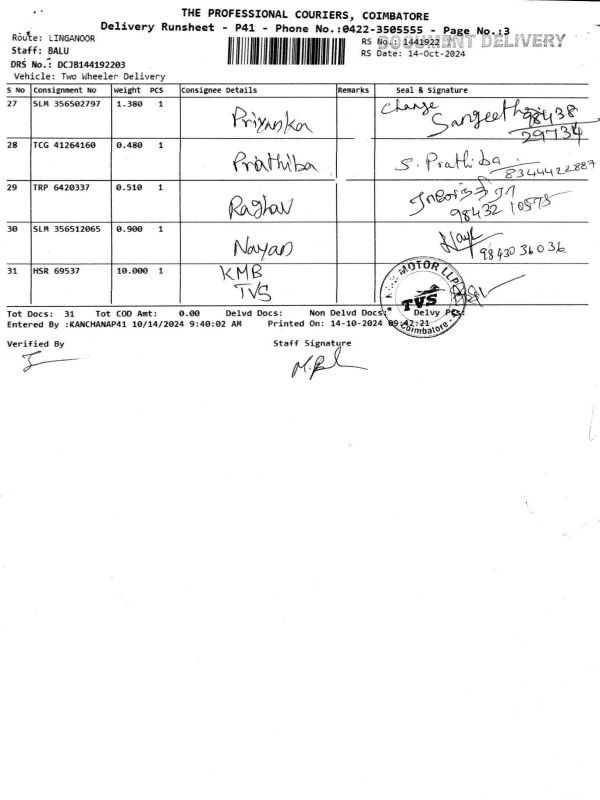 THE PROFESSIONAL COURIERS, COIMBATORE
Delivery Runsheet - P41 - Phone No.:0422-3505555 - Page No.:3
Route: LINGANOOR
RS No.: 1441922
DOCUMENT DELIVERY
Staff: BALU
RS Date: 14-Oct-2024
DRS No.: DCJB144192203
Vehicle: Two Wheeler Delivery
S No Consignment No Weight PCS Consignee Details Remarks Seal & Signature
27 SLM 356502797 1.380 1 Priyanka Change Sangeetha 98438
29734
28 TCG 41264160 0.480 1 Prathiba S. Prathiba
8344422887
29 TRP 6420337 0.510 1 Raghav
98432 10575
30 SLM 356512065 0.900 1 Nayan Nayan 98430 36036
31 HSR 69537 10.000 1 KMB
TVS
MOTOR LLP
TVS
Coimbatore
Tot Docs: 31 Tot COD Amt: 0.00 Delvd Docs: Non Delvd Docs: Delvy Pcs:
Entered By :KANCHANAP41 10/14/2024 9:40:02 AM Printed On: 14-10-2024 09:42:21
Verified By Staff Signature